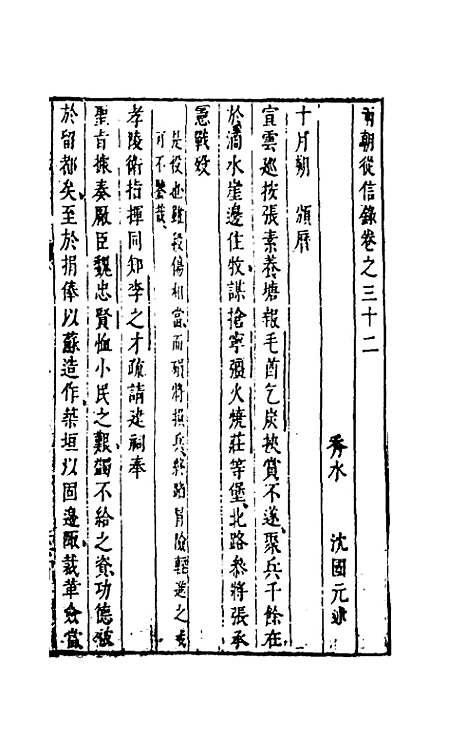 兩朝從信錄卷之三十二
秀水 沈國元 述
十月朔 頒曆
宣雲巡按張素養塘報毛酋乞炭挾賞不遂聚兵千餘在
於滴水崖邊住牧謀搶寧疆火燒莊等堡北路參將張承
憲戰歿
是役也雖殺傷相當而損將損兵終屬冒險輕進之
可不鑒哉
孝陵衛指揮同知李之才疏請建祠奉
聖旨據奏厰臣魏忠賢恤小民之艱蠲不給之資功德被
於留都矣至於捐俸以蘇造作築垣以固邊陲裁革僉當